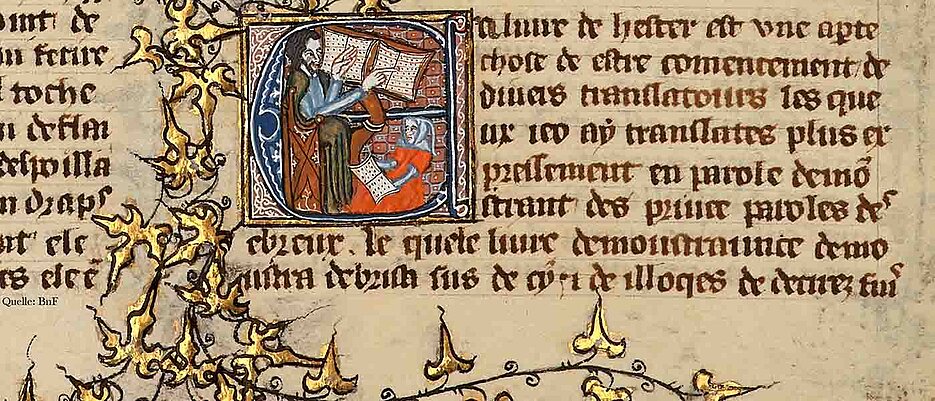 unt de
n ferire
toche
n deflai
despoilla
n draps
nt ele
es ele
Quelle: BnF
a liure de hester est vne apte
chose de estre comencement de
diuers translatours les que
ux ieo ay translates plus ex
pressement en parole demõ
strant des prince paroles de
ebreux. le quele liure demoustraunce demo
ustra debrisa sus de cy. i de illoqes de